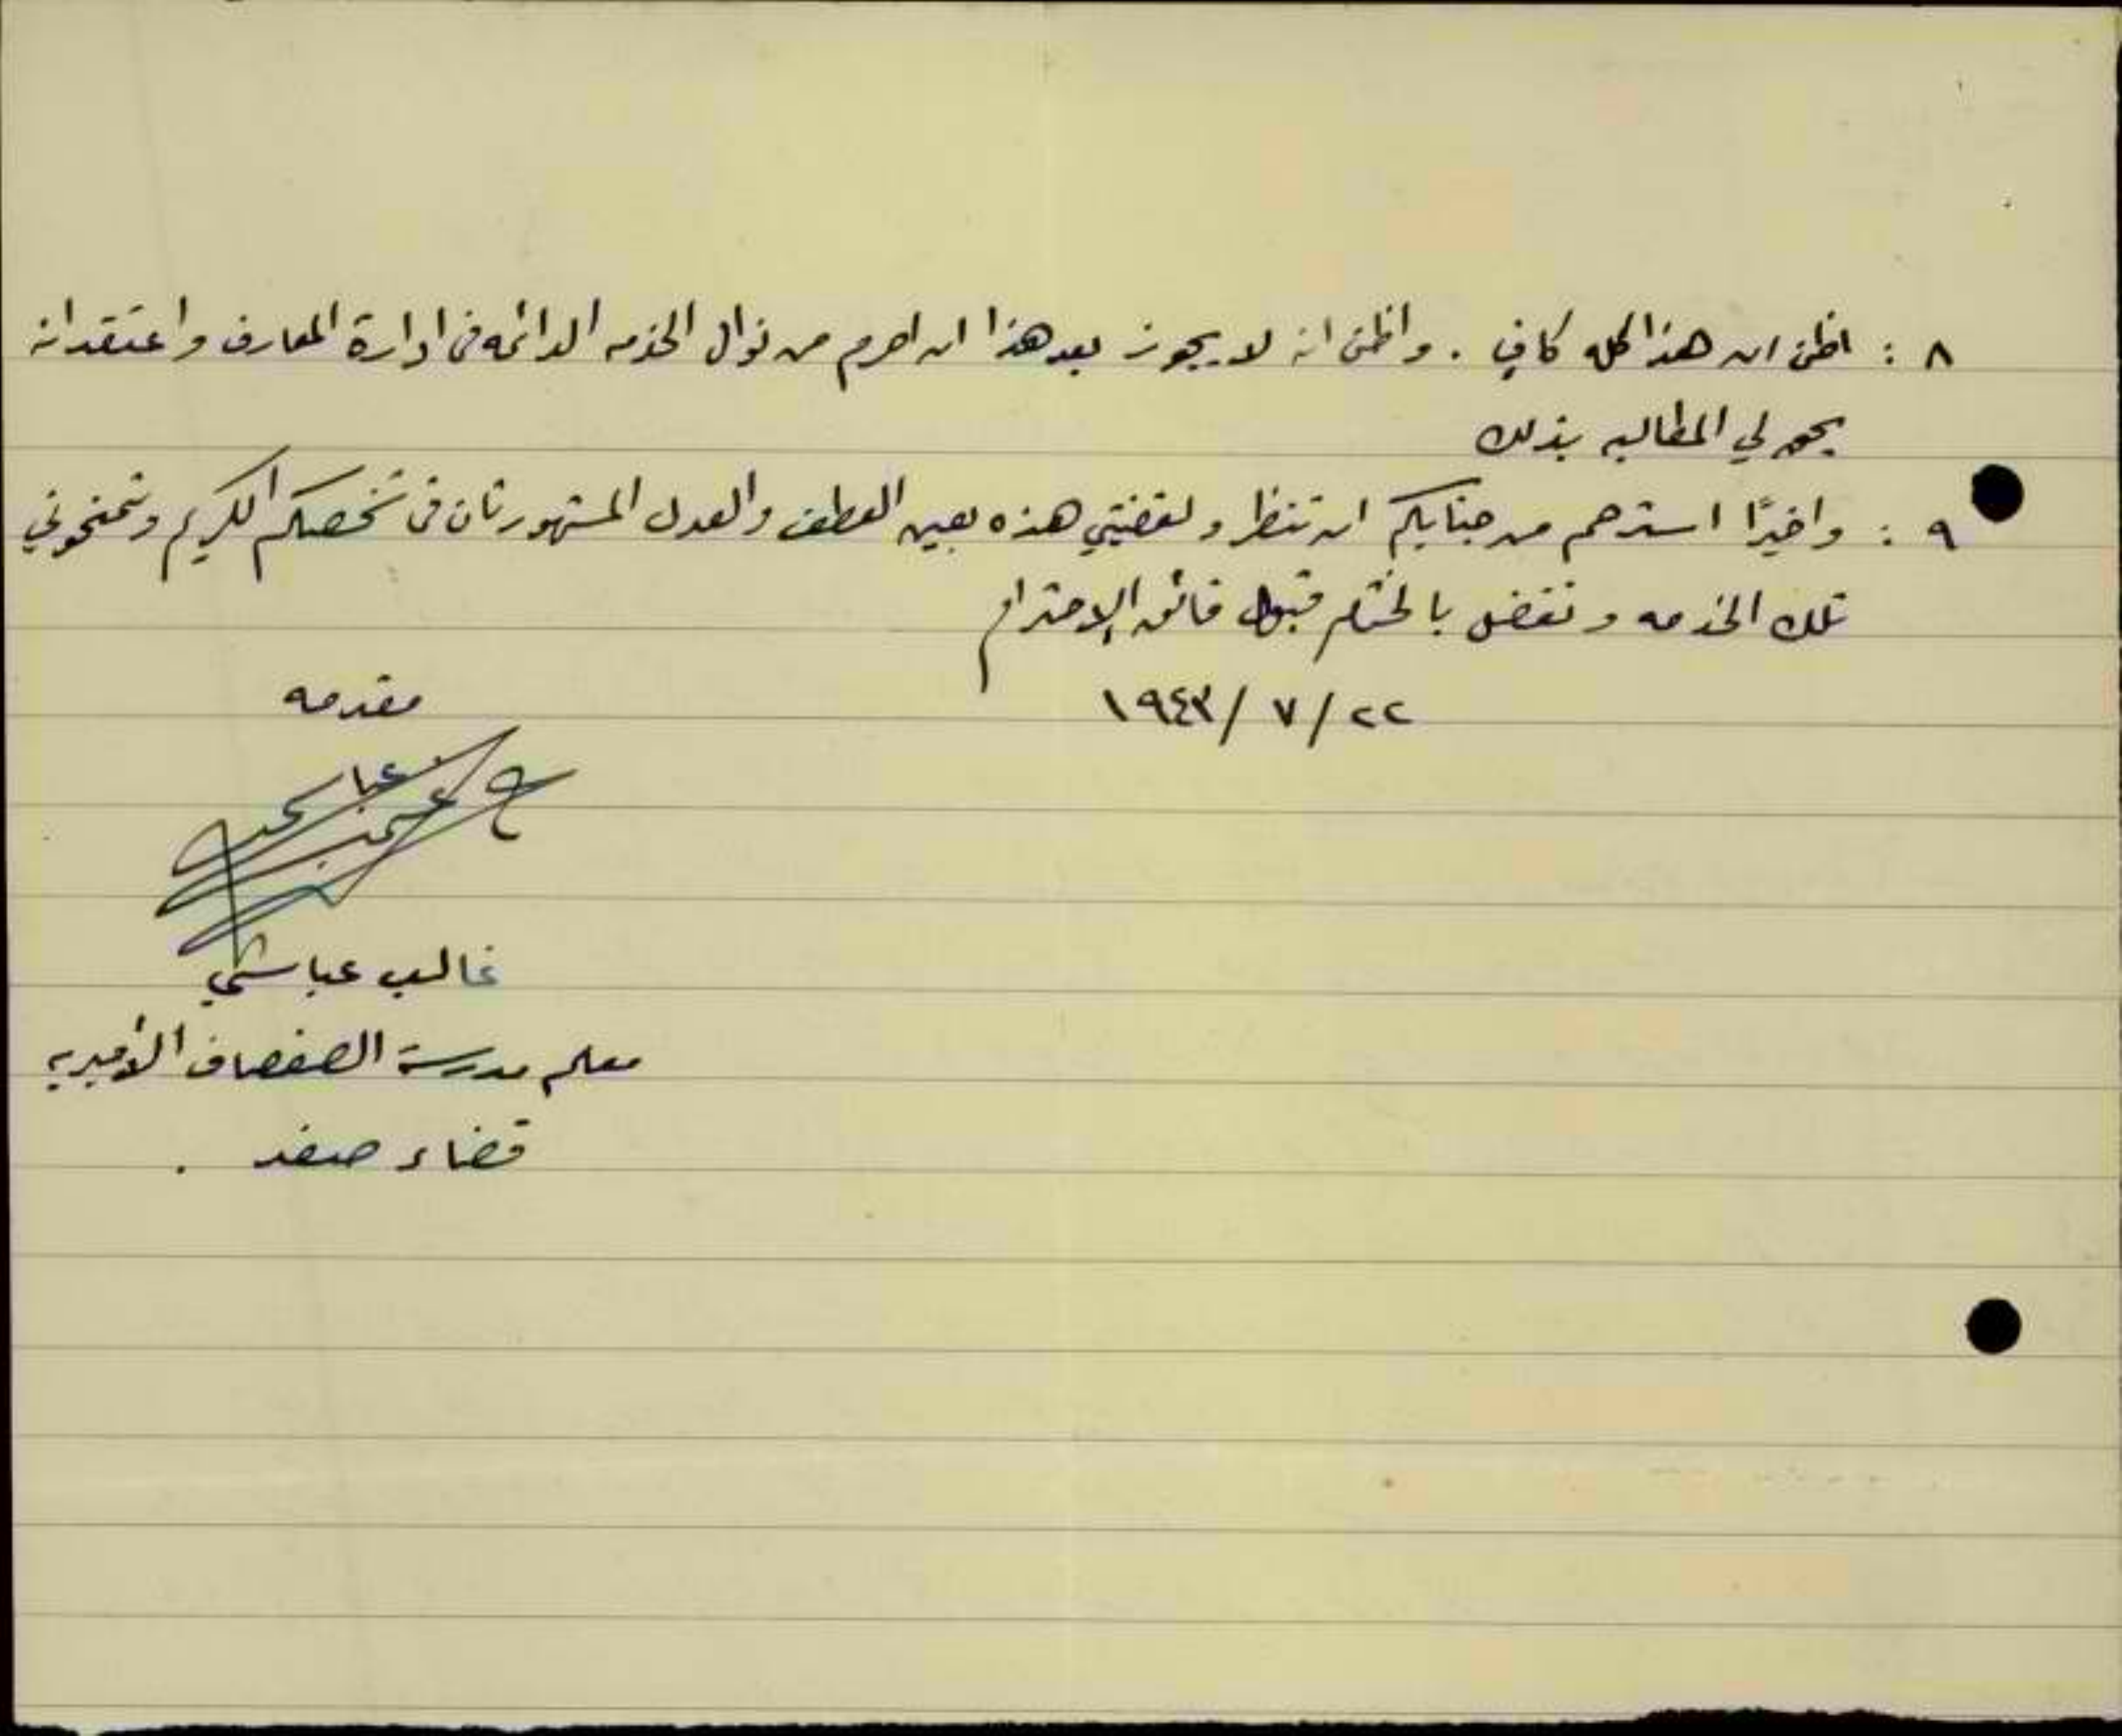 ٨ : اظن ان هذا كله كافٍ . واظن انه لا يجوز بعد هذا ان احرم من نوال الخدمه الدائمه في ادارة المعارف واعتقد انه
يحق لي المطالبه بذلك
٩ : واخيرًا استرحم من جنابكم ان تنظرو لقضيتي هذه بعين العطف والعدل المشهورتان في شخصكم الكريم وتمنحوني
تلك الخدمه وتفضل بالختام قبول فائق الاحترام
٢٢ / ٧ / ١٩٤٣
مقدمه
غالب عباسي
معلم مدرسة الصفصاف الأميريه
قضاء صفد .